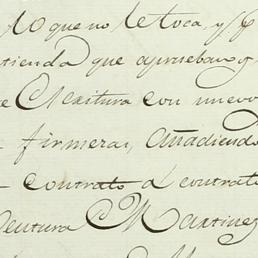 lo que no le toca, y
que aprueban y
Escritura con nuevo
firmeras, añadiendo
contrato a contrato
Ventura Martinez